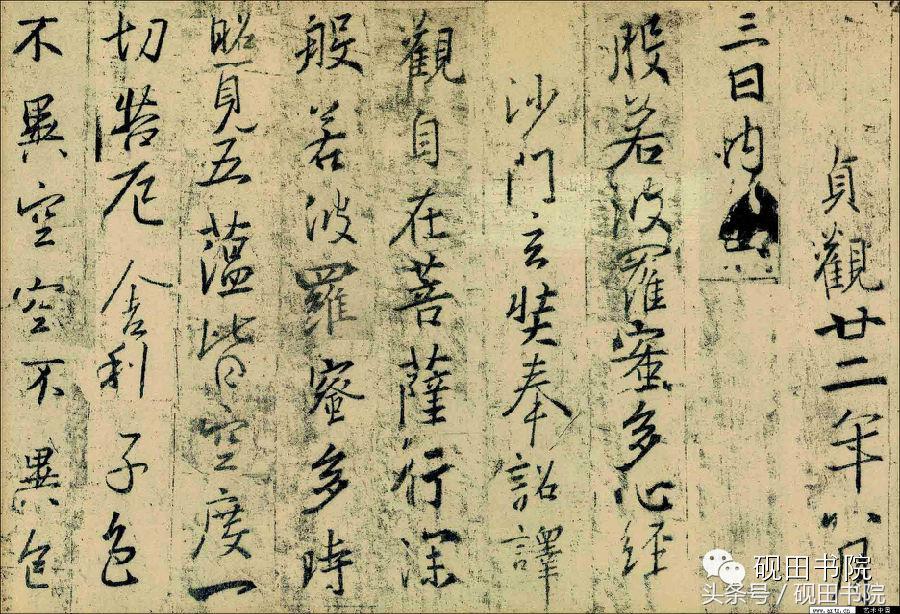 貞觀廿二年八月
三日内出
般若波羅蜜多心經
沙門玄奘奉詔譯
觀自在菩薩行深
般若波羅蜜多時
照見五蘊皆空度一
切苦厄舍利子色
不異空空不異色
砚田书院
头条号 / 砚田书院
www.artx.cn 艺术中国